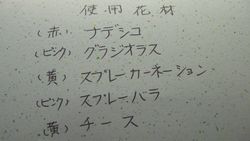 使用花材
(赤) ナデシコ
(ピンク) グラジオラス
(黄) スプレーカーネーション
(ピンク) スプレーバラ
(黄) チース